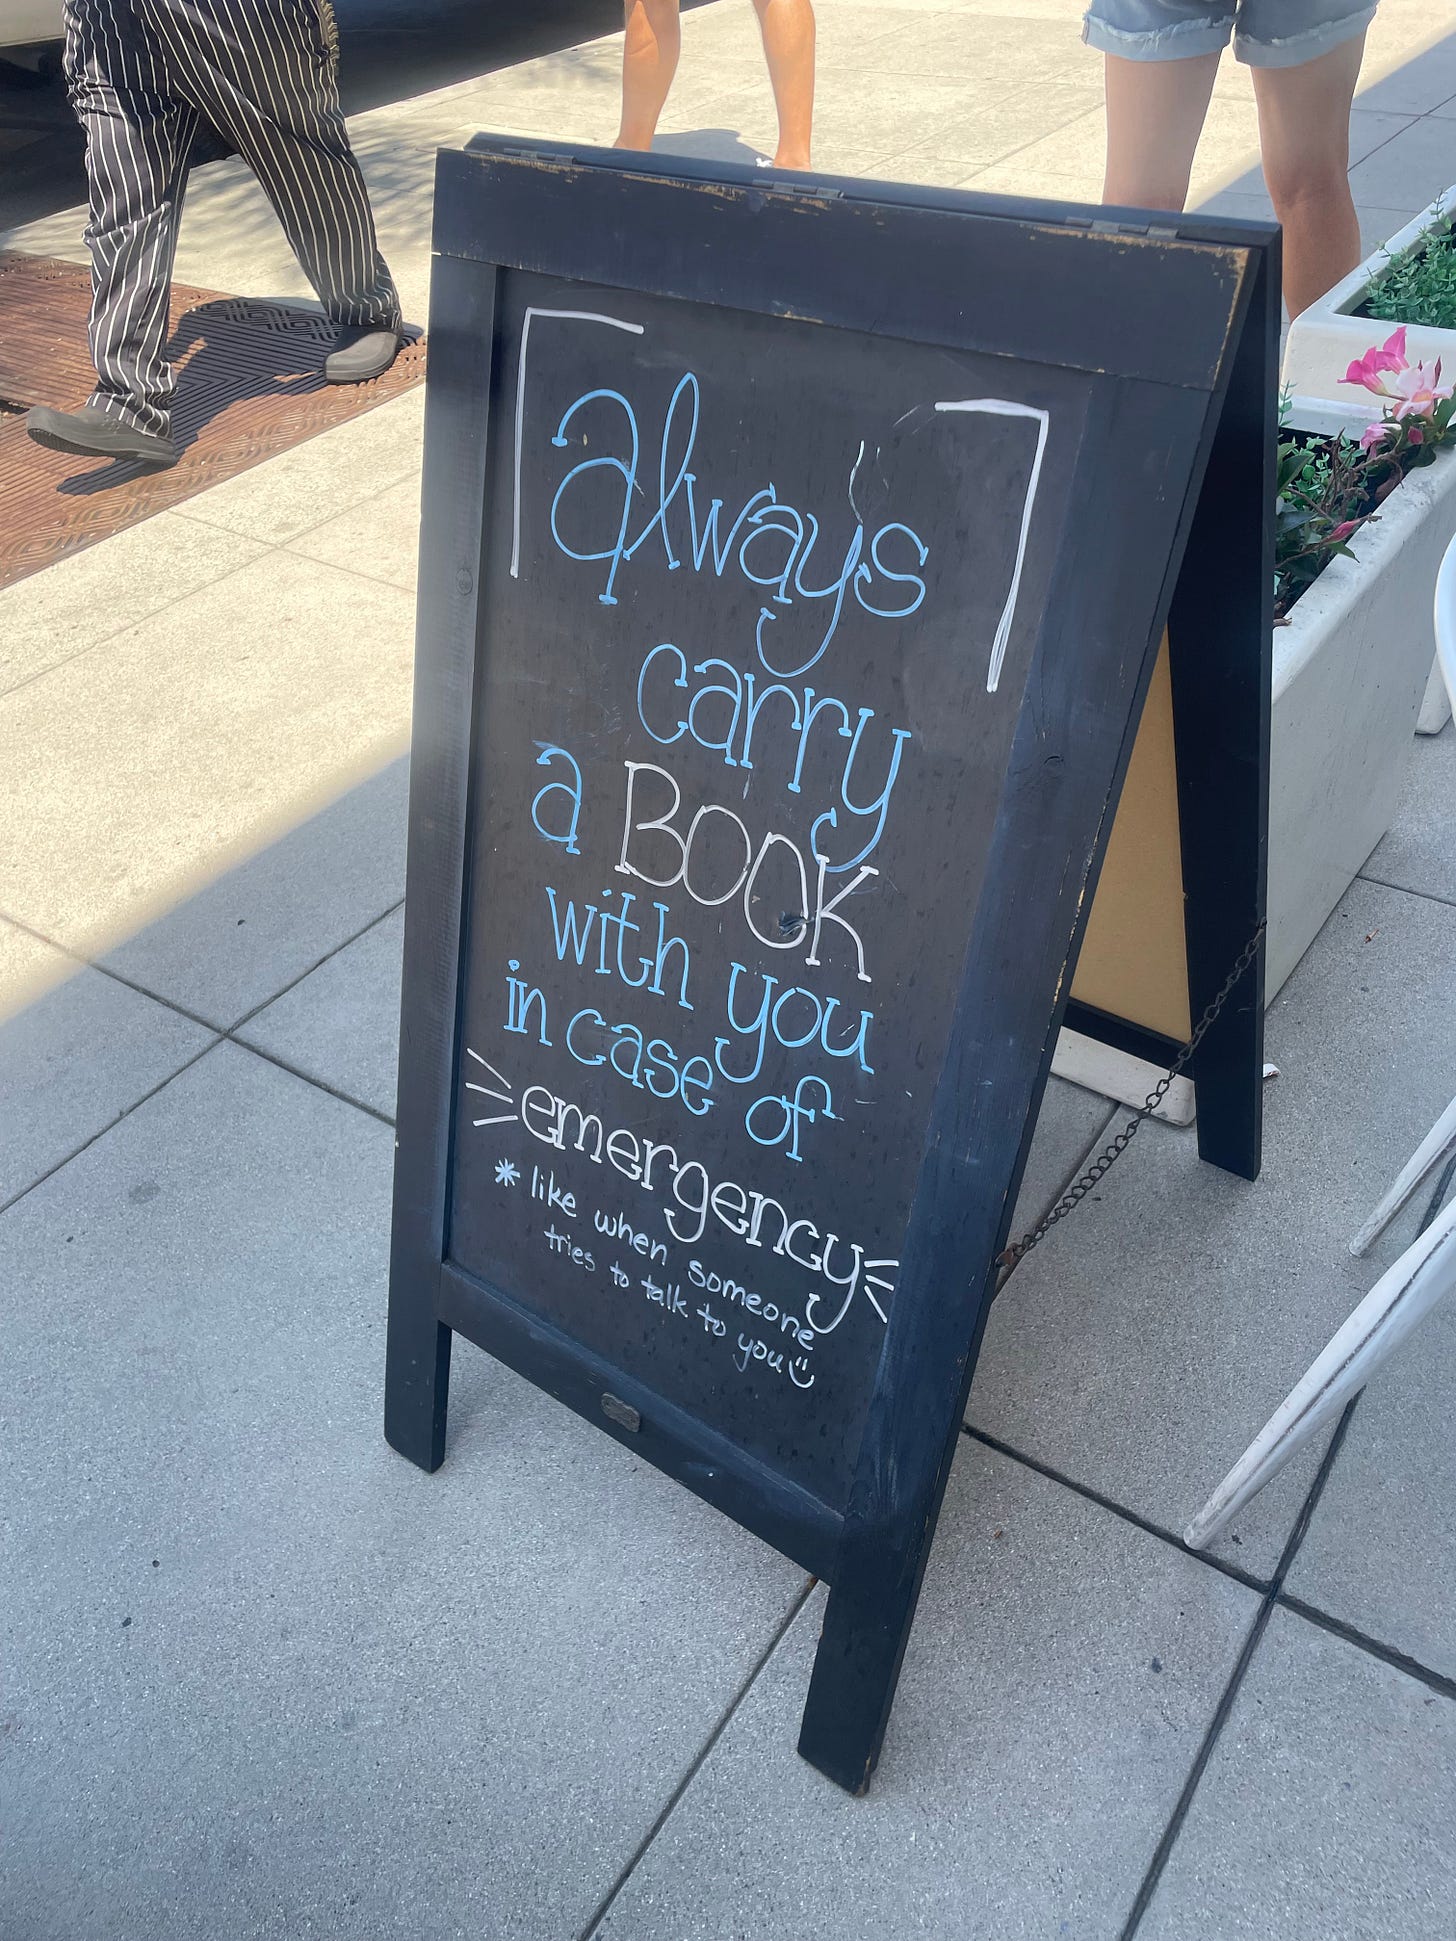 always
carry
a BOOK
with you
in case of
emergency
* like when someone
tries to talk to you